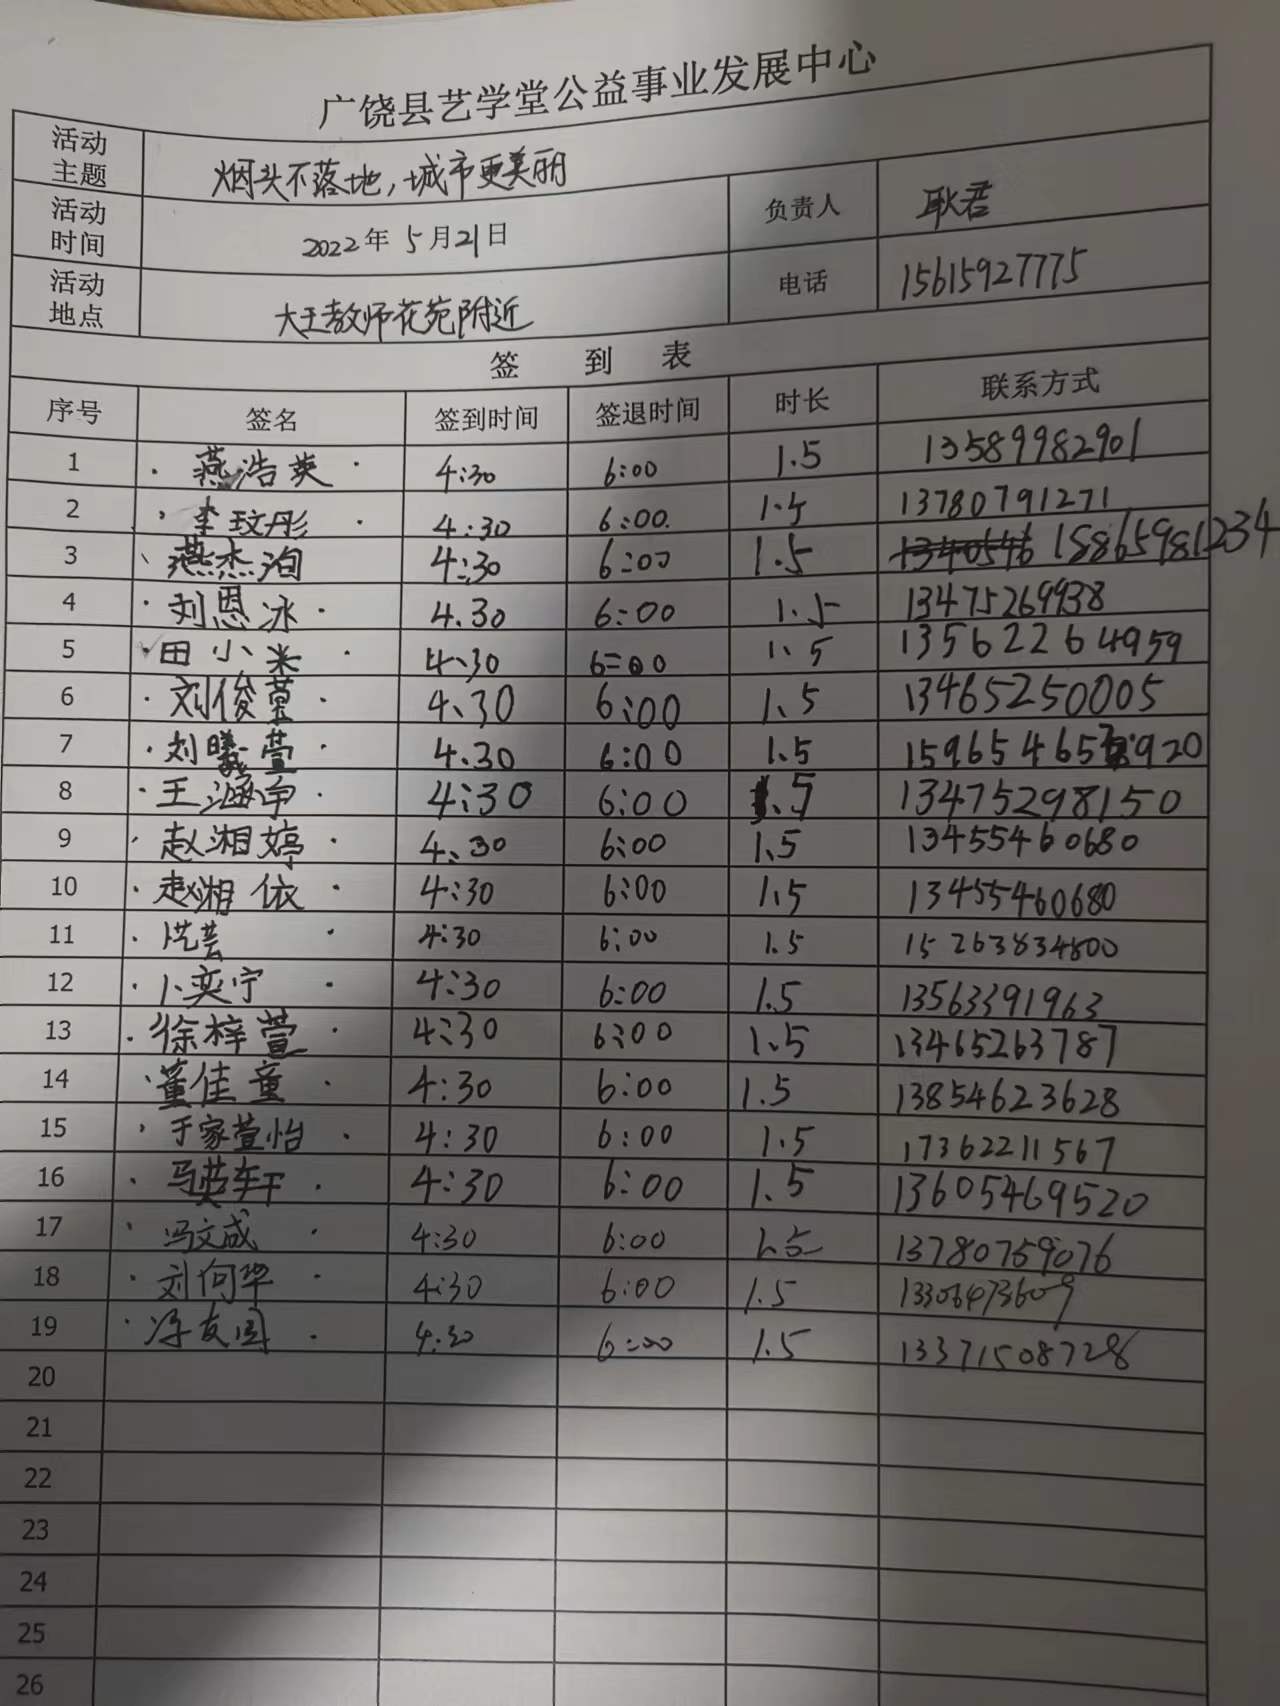 广饶县艺学堂公益事业发展中心
活动主题 烟头不落地,城市更美丽
活动时间 2022年5月21日 负责人 耿君
活动地点 大王教师花苑附近 电话 15615927775
签 到 表
序号 签名 签到时间 签退时间 时长 联系方式
1 燕浩英 4:30 6:00 1.5 13589982901
2 李玟彤 4:30 6:00 1.5 13780791271
3 燕杰洵 4:30 6:00 1.5 15865981234
4 刘恩冰 4.30 6:00 1.5 13475269938
5 田小米 4:30 6:00 1.5 13562264959
6 刘俊萱 4:30 6:00 1.5 13465250005
7 刘曦萱 4.30 6:00 1.5
8 4:30 6:00 1.5 13475298150
9 赵湘婷 4:30 6:00 1.5 13455460680
10 赵湘依 4:30 6:00 1.5 13455460680
11 4:30 6:00 1.5 15263834800
12 卜奕宁 4:30 6:00 1.5 13563391963
13 徐梓萱 4:30 6:00 1.5 13465263787
14 董佳童 4:30 6:00 1.5 13854623628
15 于家萱怡 4:30 6:00 1.5 17362211567
16 4:30 6:00 1.5 13605469520
17 冯文成 4:30 6:00 1.5 13780759076
18 刘向华 4:30 6:00 1.5 13306473609
19 4:30 6:00 1.5
20
21
22
23
24
25
26